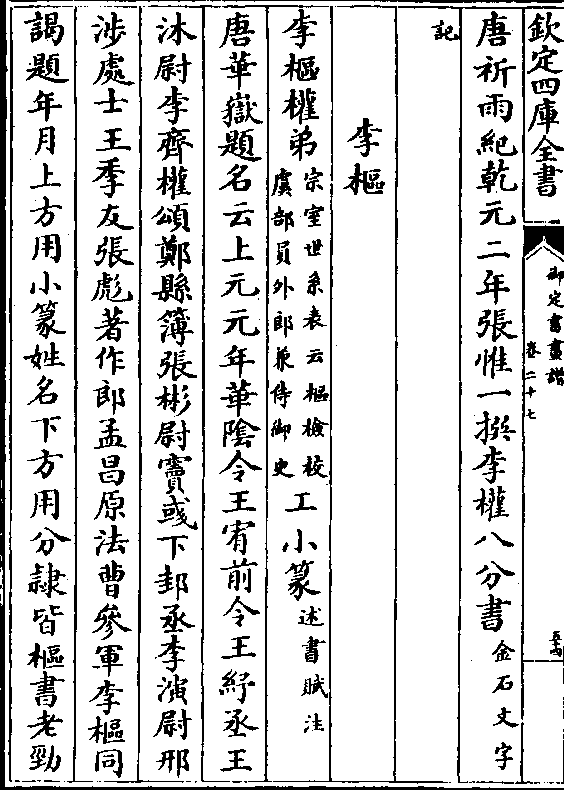 欽定四庫全書
御定書畫譜
卷二十七
唐祈雨紀乾元二年張惟一撰李權八分書金石文字
記
李樞
李樞權弟宗室世系表云樞檢校虞部員外郎兼侍御史工小篆述書賦注
唐華嶽題名云上元元年華陰令王宥前令王紓丞王
沐尉李齊權頌鄭縣簿張彬尉竇彧下邽丞李演尉邢
涉處士王季友張彪著作郎孟昌原法曹參軍李樞同
謁題年月上方用小篆姓名下方用分隸皆樞書老勁